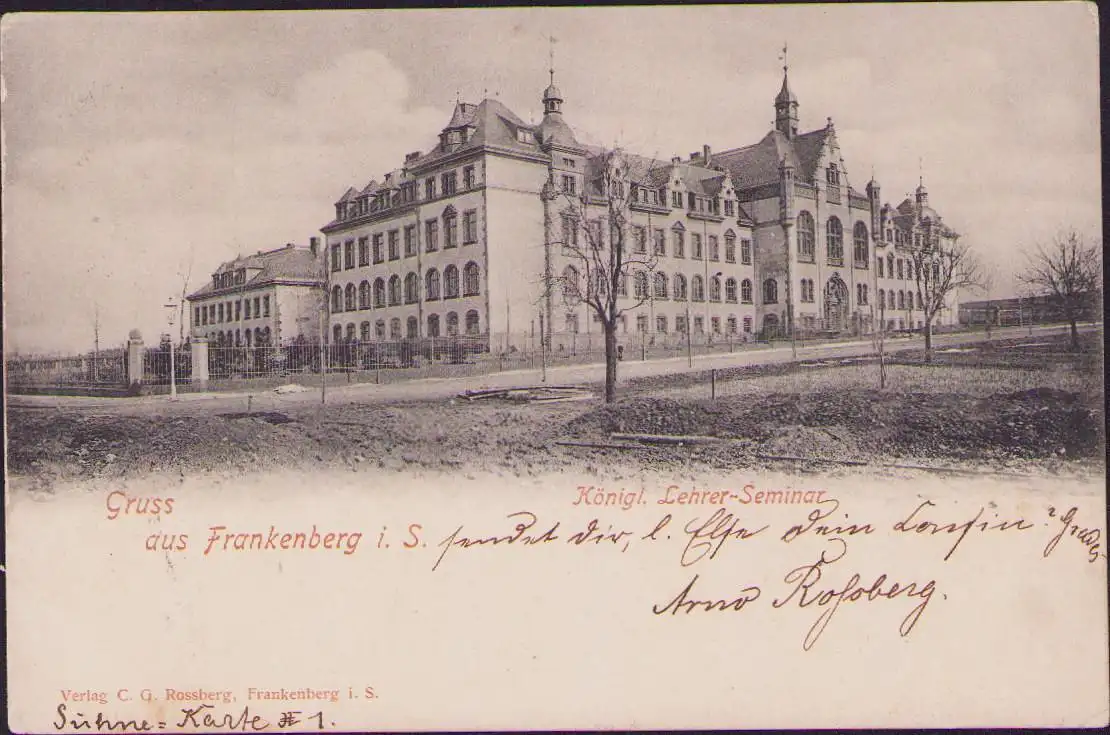 Gruss
Königl. Lehrer-Seminar
aus Frankenberg i. S.
sendet dir, l. Else dein Cousin
Arno Roßberg.
Verlag C. G. Rossberg, Frankenberg i. S.
Sühne=Karte # 1.